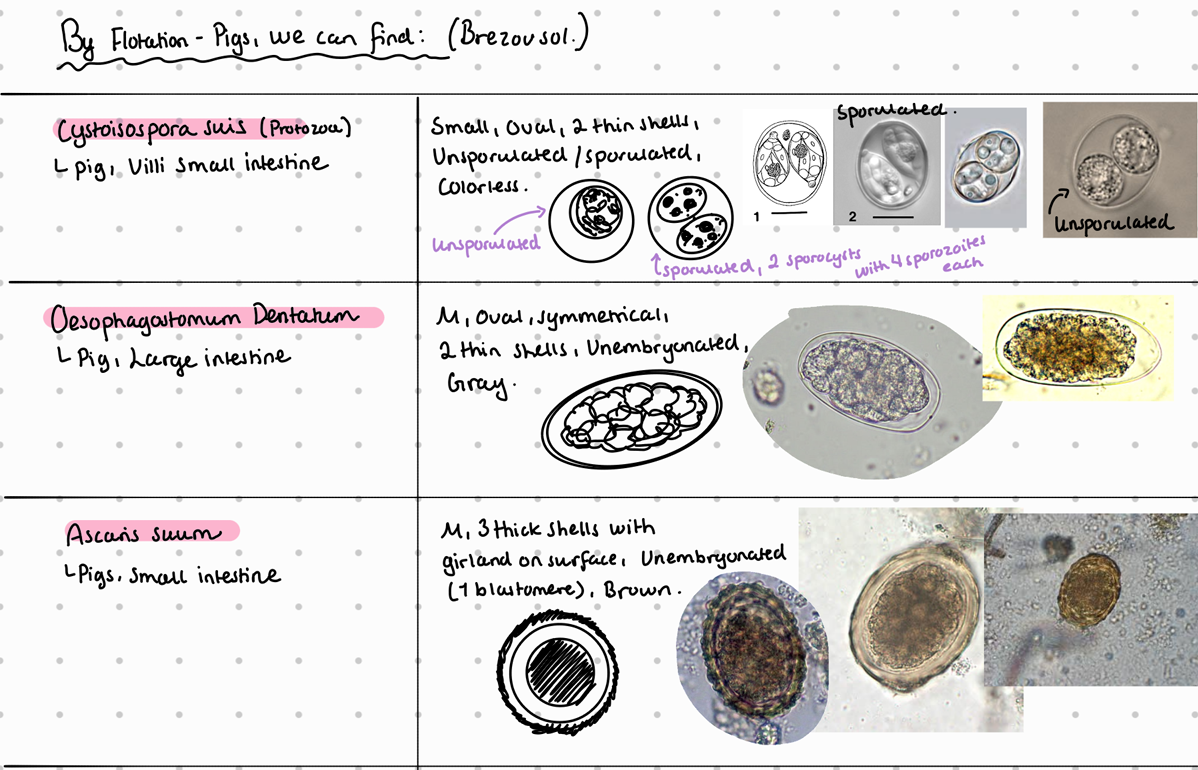 By Flotation - Pigs, we can find: (Brezovsol.)
Cystoisospora suis (Protozoa)
└ pig, Villi small intestine
Small, Oval, 2 thin shells,
Unsporulated / sporulated,
Colorless.
Unsporulated
sporulated, 2 sporocysts
with 4 sporozoites
each
sporulated.
1
2
Unsporulated
Oesophagostomum Dentatum
└ Pig, Large intestine
M, Oval, symmetrical,
2 thin shells, Unembryonated,
Gray.
Ascaris suum
└Pigs, Small intestine
M, 3 thick shells with
girland on surface, Unembryonated
(1 blastomere), Brown.